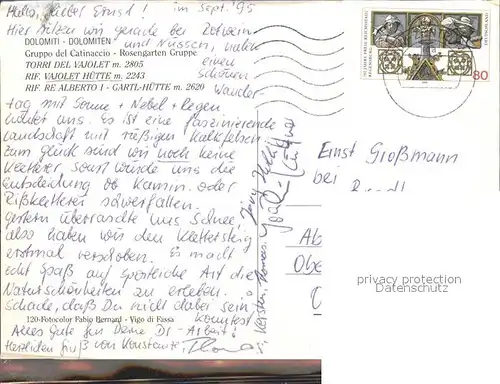 Hallo, lieber Ernst! im Sept. '95
Hier sitzen wir gerade bei Rotwein
DOLOMITI - DOLOMITEN
und Nüssen, vielen
Gruppo del Catinaccio - Rosengarten Gruppe
TORRI DEL VAJOLET m. 2805
einen
RIF. VAJOLET HÜTTE m. 2243
schönen
RIF. RE ALBERTO I - GARTL-HÜTTE m. 2620
Wander-
tag mit Sonne + Nebel + Regen
hinter uns. Es ist eine faszinierende
Landschaft mit riesigen Kalkfelsen.
Zum Glück sind wir noch keine
Kletterer, sonst würde uns die
Entscheidung ob Kamin- oder
Rißklettern schwerfallen.
Gestern überraschte uns Schnee,
also haben wir den Klettersteig
erstmal verschoben. Es macht
echt Spaß auf sportliche Art die
Naturschönheiten zu erleben.
Schade, daß Du nicht dabei sein
konntest.
120-Fotocolor Fabio Bernard - Vigo di Fassa
Alles Gute für Deine Di-Arbeit!
Herzlichen Gruß von Konstanze, Thomas
Kerstin, Thomas
80
Ernst Großmann
bei
Ab
Obe
privacy protection
Datenschutz